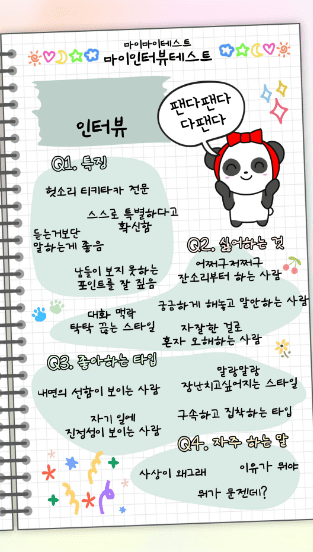 마이마이테스트
마이인터뷰테스트
인터뷰
팬다팬다
다팬다
Q1. 특징
헛소리 티키타카 전문
스스로 특별하다고
확신함
듣는거보단
말하는게 좋음
남들이 보지 못하는
포인트를 잘 짚음
대화 맥락
탁탁 끊는 스타일
Q2. 싫어하는 것
어쩌구저쩌구
잔소리부터 하는 사람
궁금하게 해놓고 말안하는 사람
자잘한 걸로
혼자 오해하는 사람
Q3. 좋아하는 타입
내면의 선함이 보이는 사람
말랑말랑
장난치고싶어지는 스타일
자기 일에
진정성이 보이는 사람
구속하고 집착하는 타입
Q4. 자주 하는 말
사상이 왜그래
이유가 뭐야
뭐가 문젠데?